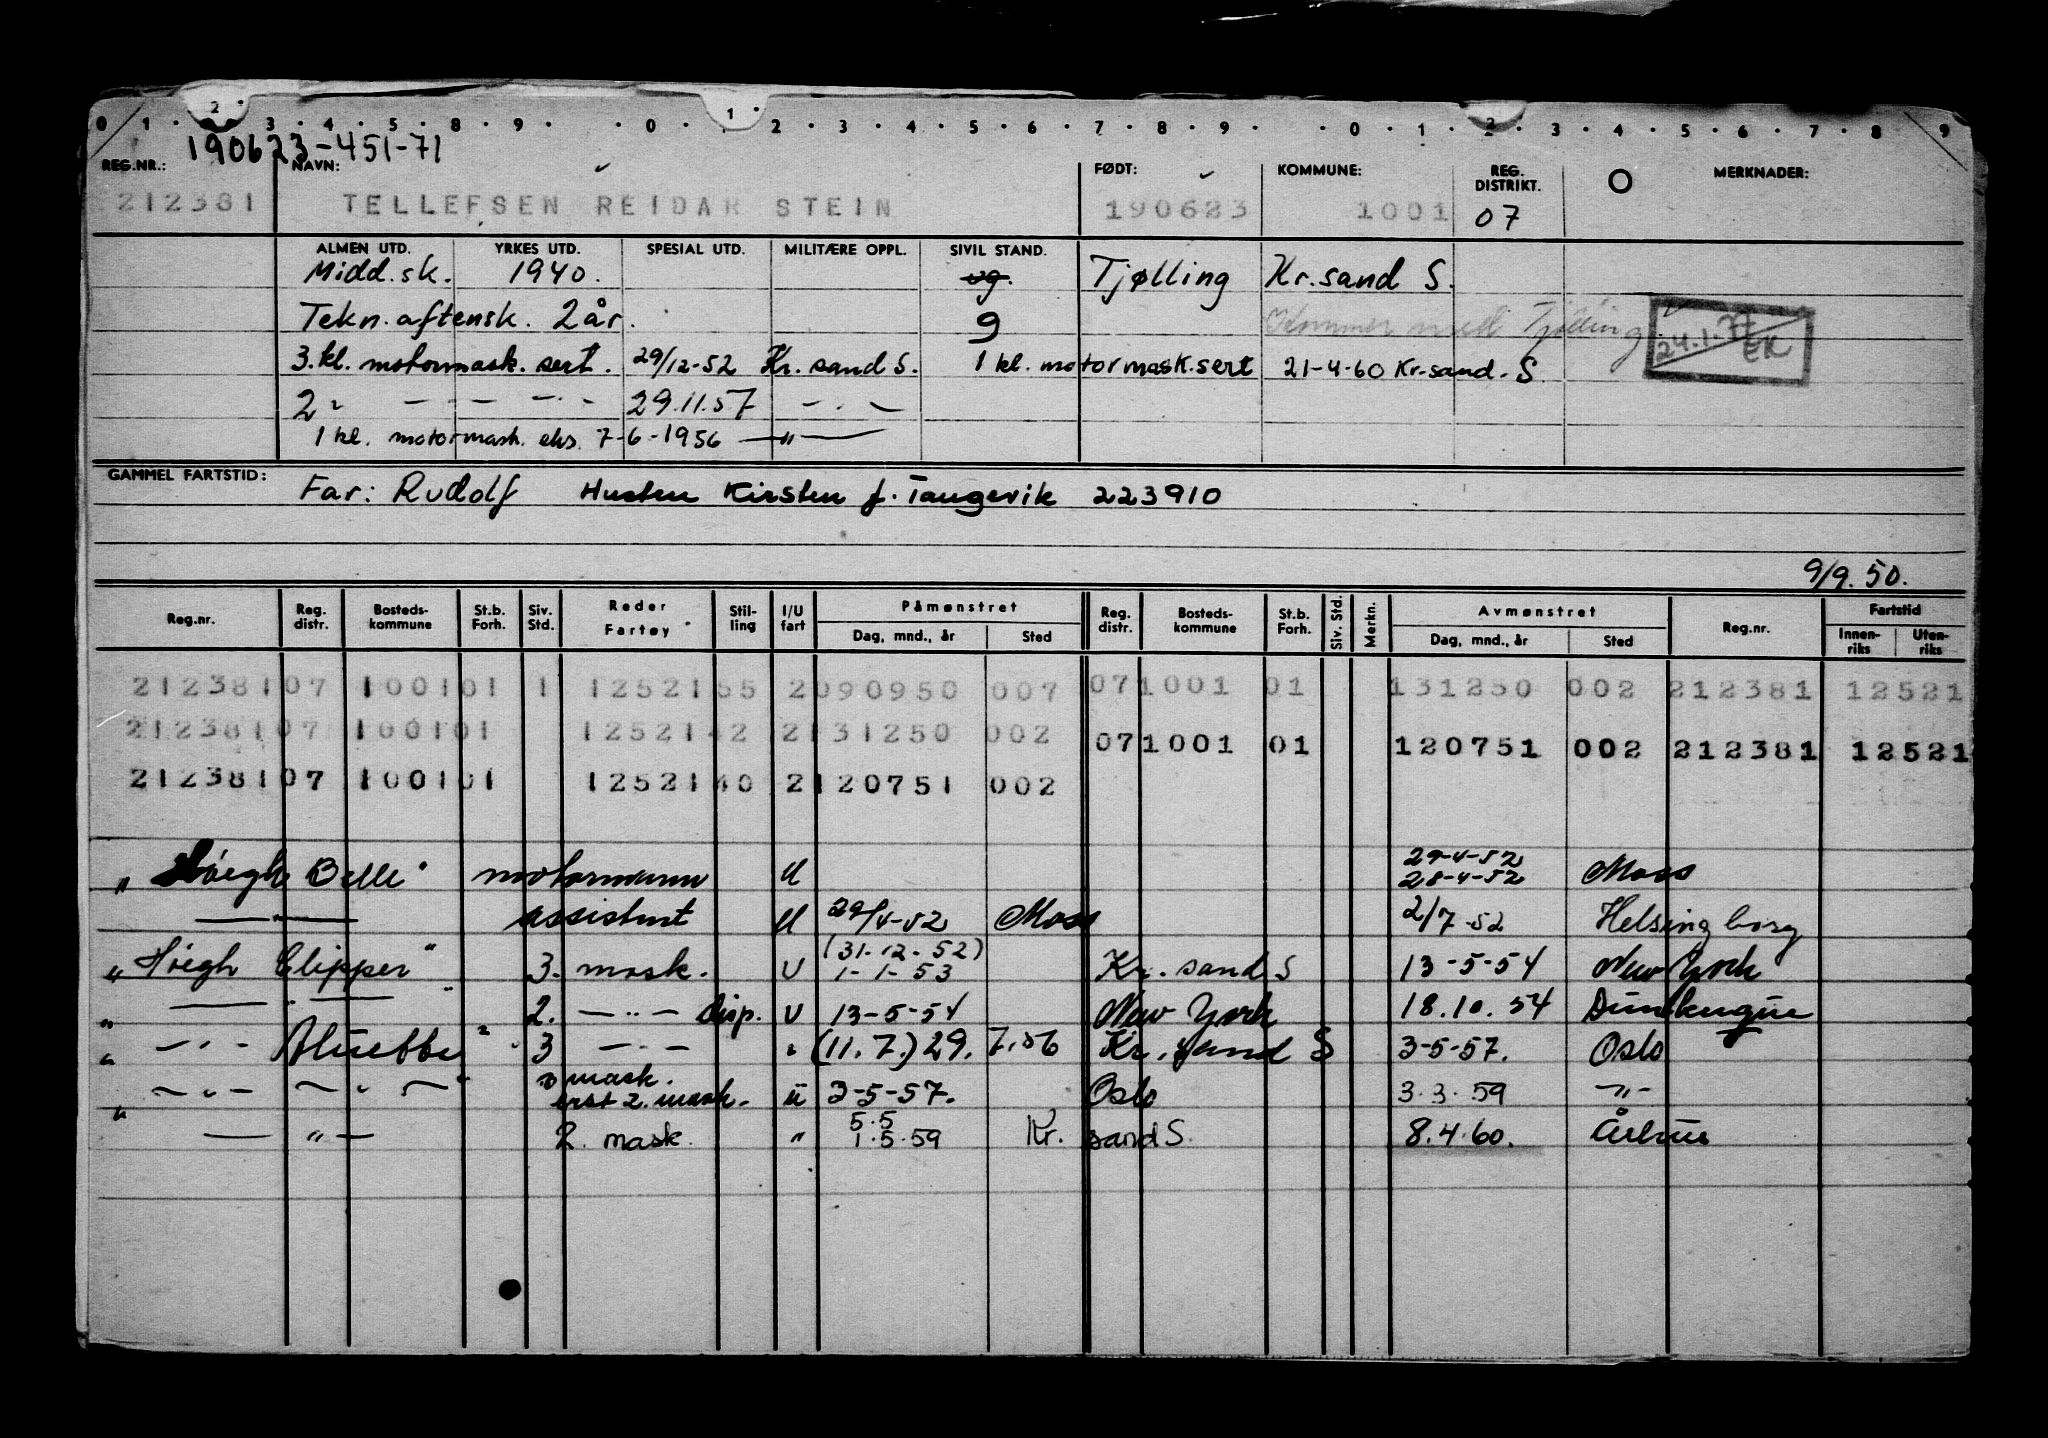 0 1 · 2 · 3 · 4 · 5 · 8 · 9 · · 0 · 1 · 2 · 3 · 4 · 5 · 6 · 7 · 8 · 9 · · 0 · 1 · 2 · 3 · 4 · 5 · 6 · 7 · 8 9
190623-451-71
REG.NR.: NAVN: FØDT: KOMMUNE: REG. DISTRIKT. O MERKNADER:
212381 TELLEFSEN REIDAR STEIN 190623 1001 07
ALMEN UTD. YRKES UTD. SPESIAL UTD. MILITÆRE OPPL. SIVIL STAND.
Midd.sk. 1940. ug. Tjølling Kr.sand S.
Tekn.aftensk. 2år. g Kommer med Tjølling
24.1.77 EK
3.kl. motormask. sert. 29/12-52 Kr. sand S. 1 kl. motormask.sert 21-4-60 Kr.sand. S
2 " — - — — · - 29.11.57 — · —
1 kl. motormask. eks. 7-6-1956 — " —
GAMMEL FARTSTID: Far: Rudolf Hustru Kirsten f. Tangevik 223910
9/9.50.
Reg.nr. Reg. distr. Bosteds-kommune St.b. Forh. Siv. Std. Reder Fartøy Stil-ling I/U fart Påmønstret Dag, mnd., år Sted Reg. distr. Bosteds-kommune St.b. Forh. Siv. Std. Merkn. Avmønstret Dag, mnd., år Sted Reg.nr. Fartstid Innen-riks Uten-riks
212381 07 1001 01 1 12521 55 2 090950 007 07 1001 01 131250 002 212381 12521
212381 07 1001 01 12521 42 2 131250 002 07 1001 01 120751 002 212381 12521
212381 07 1001 01 12521 40 2 120751 002
29-4-52
" Høegh Belle" motormann U 28-4-52 Moss
— " — assistent U 29/4-52 Moss 2/7-52 Helsingborg
(31.12.52)
" Høegh Clipper" 3. mask. U 1-1-53 Kr. sand S 13-5-54 New York
" — " — " 2. — " — disp. U 13-5-54 New York 18.10.54 Dunkerque
" — " — Aluette " 3 — " — " (11.7.) 29.7.56 Kr. sand S 3-5-57. Oslo
3 mask.
" — " — — " — " 2. mask. U 3-5-57. Oslo 3.3.59 — " —
5.5
— " — 2. mask. " 1.5.59 Kr. sand S. 8.4.60. Århus